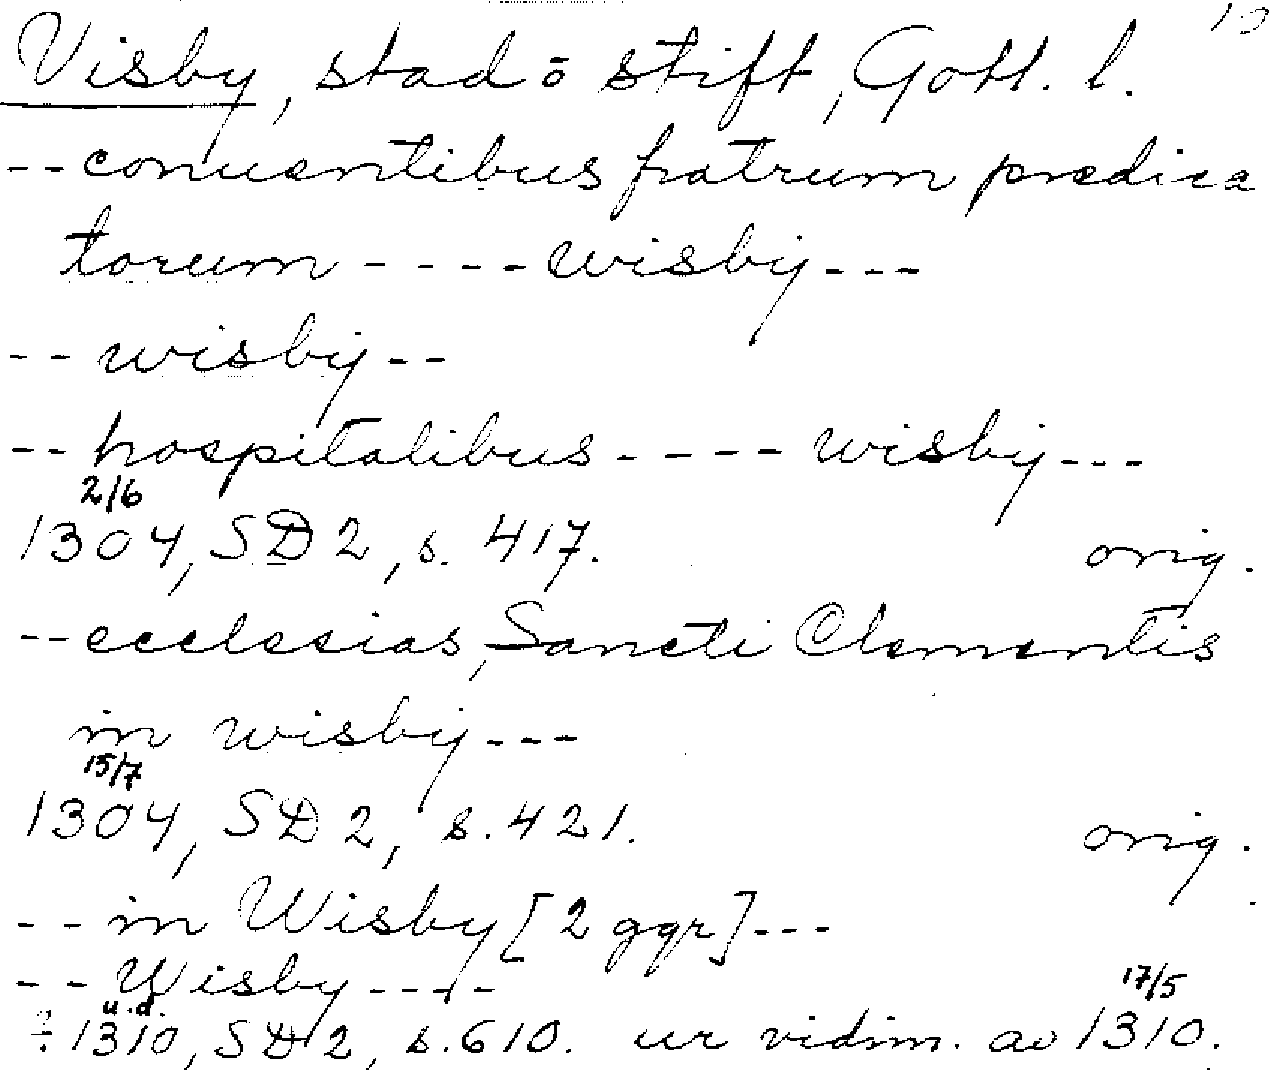 10
Visby, stad o stift, Gotl. l.
-- conuentibus fratrum predica
torum ---- wisby ---
-- wisby --
-- hospitalibus ---- wisby ---
2/6
1304, SD 2, s. 417. orig.
-- ecclesias, Sancti Clementis
in wisby ---
15/7
1304, SD 2, s. 421. orig.
-- in Wisby [2 ggr] ---
-- Wisby ----
u.d. 17/5
1310, SD 2, s. 610. ur vidim. av 1310.